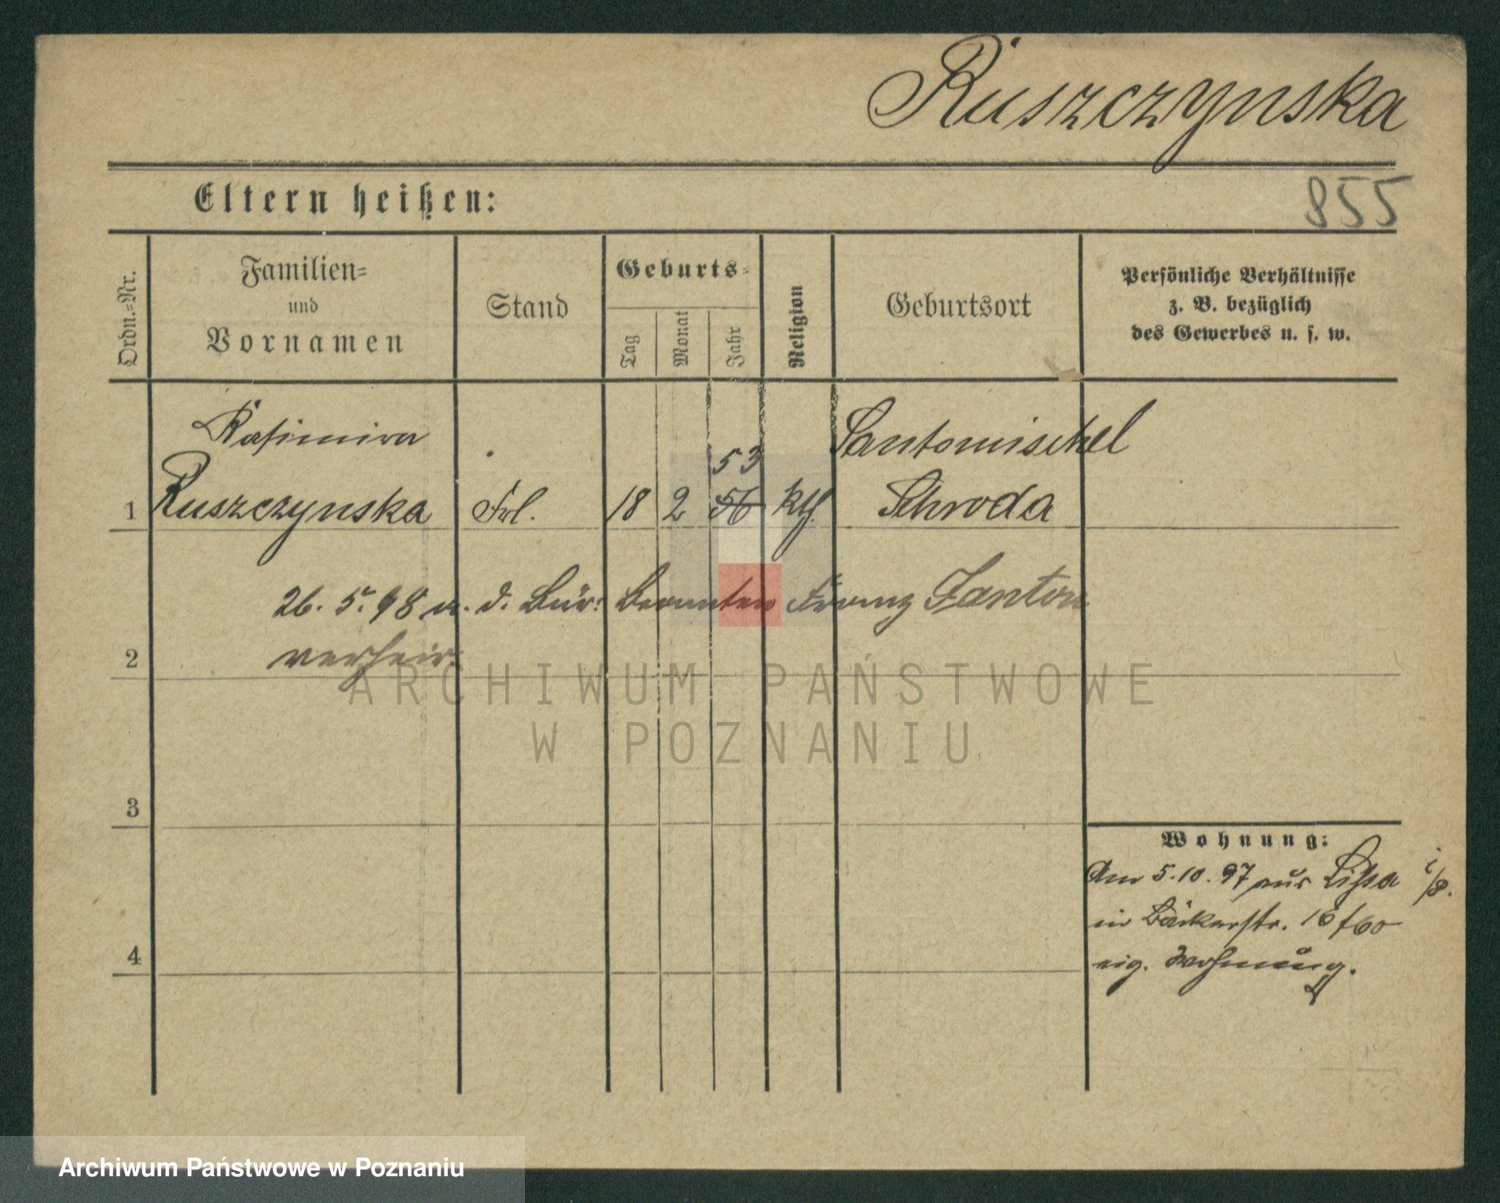 Ruszczynska
Eltern heißen:
855
Ordn.=Nr.
Familien=
und
Vornamen
Stand
Geburts=
Tag
Monat
Jahr
Religion
Geburtsort
Persönliche Verhältnisse
z. B. bezüglich
des Gewerbes u. s. w.
Kasimira
53
Santomischel
1 Ruszczynska Frl. 18 2 56 kth. Schroda
26. 5. 98 m. d. Bür. Beamten Franz Janton
2 verheir.
ARCHIWUM PAŃSTWOWE
W POZNANIU
3
Wohnung:
Am 5.10.97 aus Lissa i/P.
in Bäckerstr. 16
4 eig. Wohnung.
Archiwum Państwowe w Poznaniu